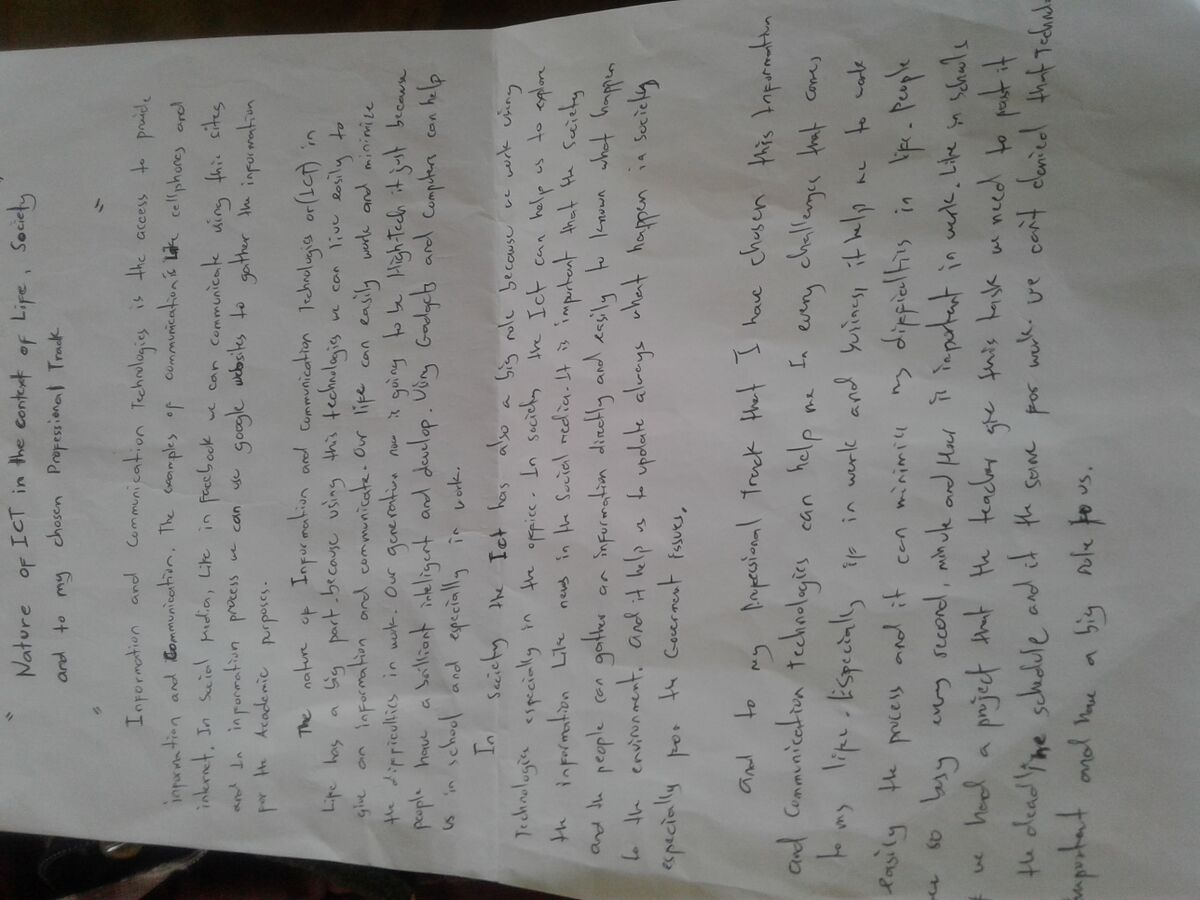 " Nature of ICT in the context of Life, Society
and to my chosen Professional Track
" "
Information and Communication Technologies is the access to provide
information and Communication. The examples of communication is like cellphones and
internet. In Social Media, Like in facebook we can communicate using this sites
and In information process we can use google websites to gather the information
for the Academic purposes.
The nature of Information and Communication Technologies or (ICT) in
Life has a big part because using this technologies we can live easily to
give an information and communicate. Our life can easily work and minimize
the difficulties in work. Our generation now is going to be High-Tech it just because
people have a brilliant inteligent and develop. Using Gadgets and Computers can help
us in school and especially in work.
In Society the Ict has also a big role because we work using
Technologies especially in the office. In society the Ict can help us to explore
the information Like news in the Social media. It is important that the society
and the people can gather an information directly and easily to known what happen
to the environment. And it help us to update always what happen in society
especially for the Goverment Issues.
and to my professional Track that I have chosen this Information
and Communication Technologies can help me In every challenges that comes
to my life. Especially if in work and businas, it help me to work
easily the process and it can minimize my difficaltis in life. People
so busy every second, minute and Hour is important in work. Like in schools
we hand a project that the teacher give this task we need to past it
the deadline schedule and it the same for work. we can't denied that Techno
important and have a big role to us.